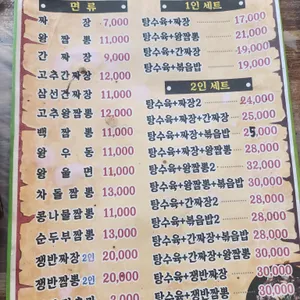 면 류
짜 장 7,000
왕 짬 뽕 11,000
간 짜 장 9,000
고추간짜장 12,000
삼선간짜장 12,000
고추왕짬뽕 12,000
백 짬 뽕 11,000
왕 우 동 11,000
왕 울 면 11,000
차돌짬뽕 13,000
콩나물짬뽕 11,000
순두부짬뽕 13,000
쟁반짜장 2인 20,000
쟁반짬뽕 2인 20,000
1인 세트
탕수육+짜장 17,000
탕수육+왕짬뽕 21,000
탕수육+간짜장 19,000
탕수육+볶음밥 19,000
2인 세트
탕수육+짜장2 24,000
탕수육+짜장+간짜장 25,000
탕수육+짜장+볶음밥 25,000
탕수육+짜장+왕짬뽕 28,000
탕수육+왕짬뽕2 32,000
탕수육+왕짬뽕+볶음밥 30,000
탕수육+간짜장2 28,000
탕수육+볶음밥2 28,000
탕수육+간짜장+볶음밥 28,000
탕수육+간짜장+왕짬뽕 30,000
탕수육+쟁반짜장 30,000
탕수육+쟁반짬뽕 30,000